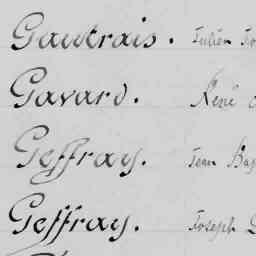 Gautrais. Julien
Gavard. René
Geffray. Jean Bap
Geffray. Joseph